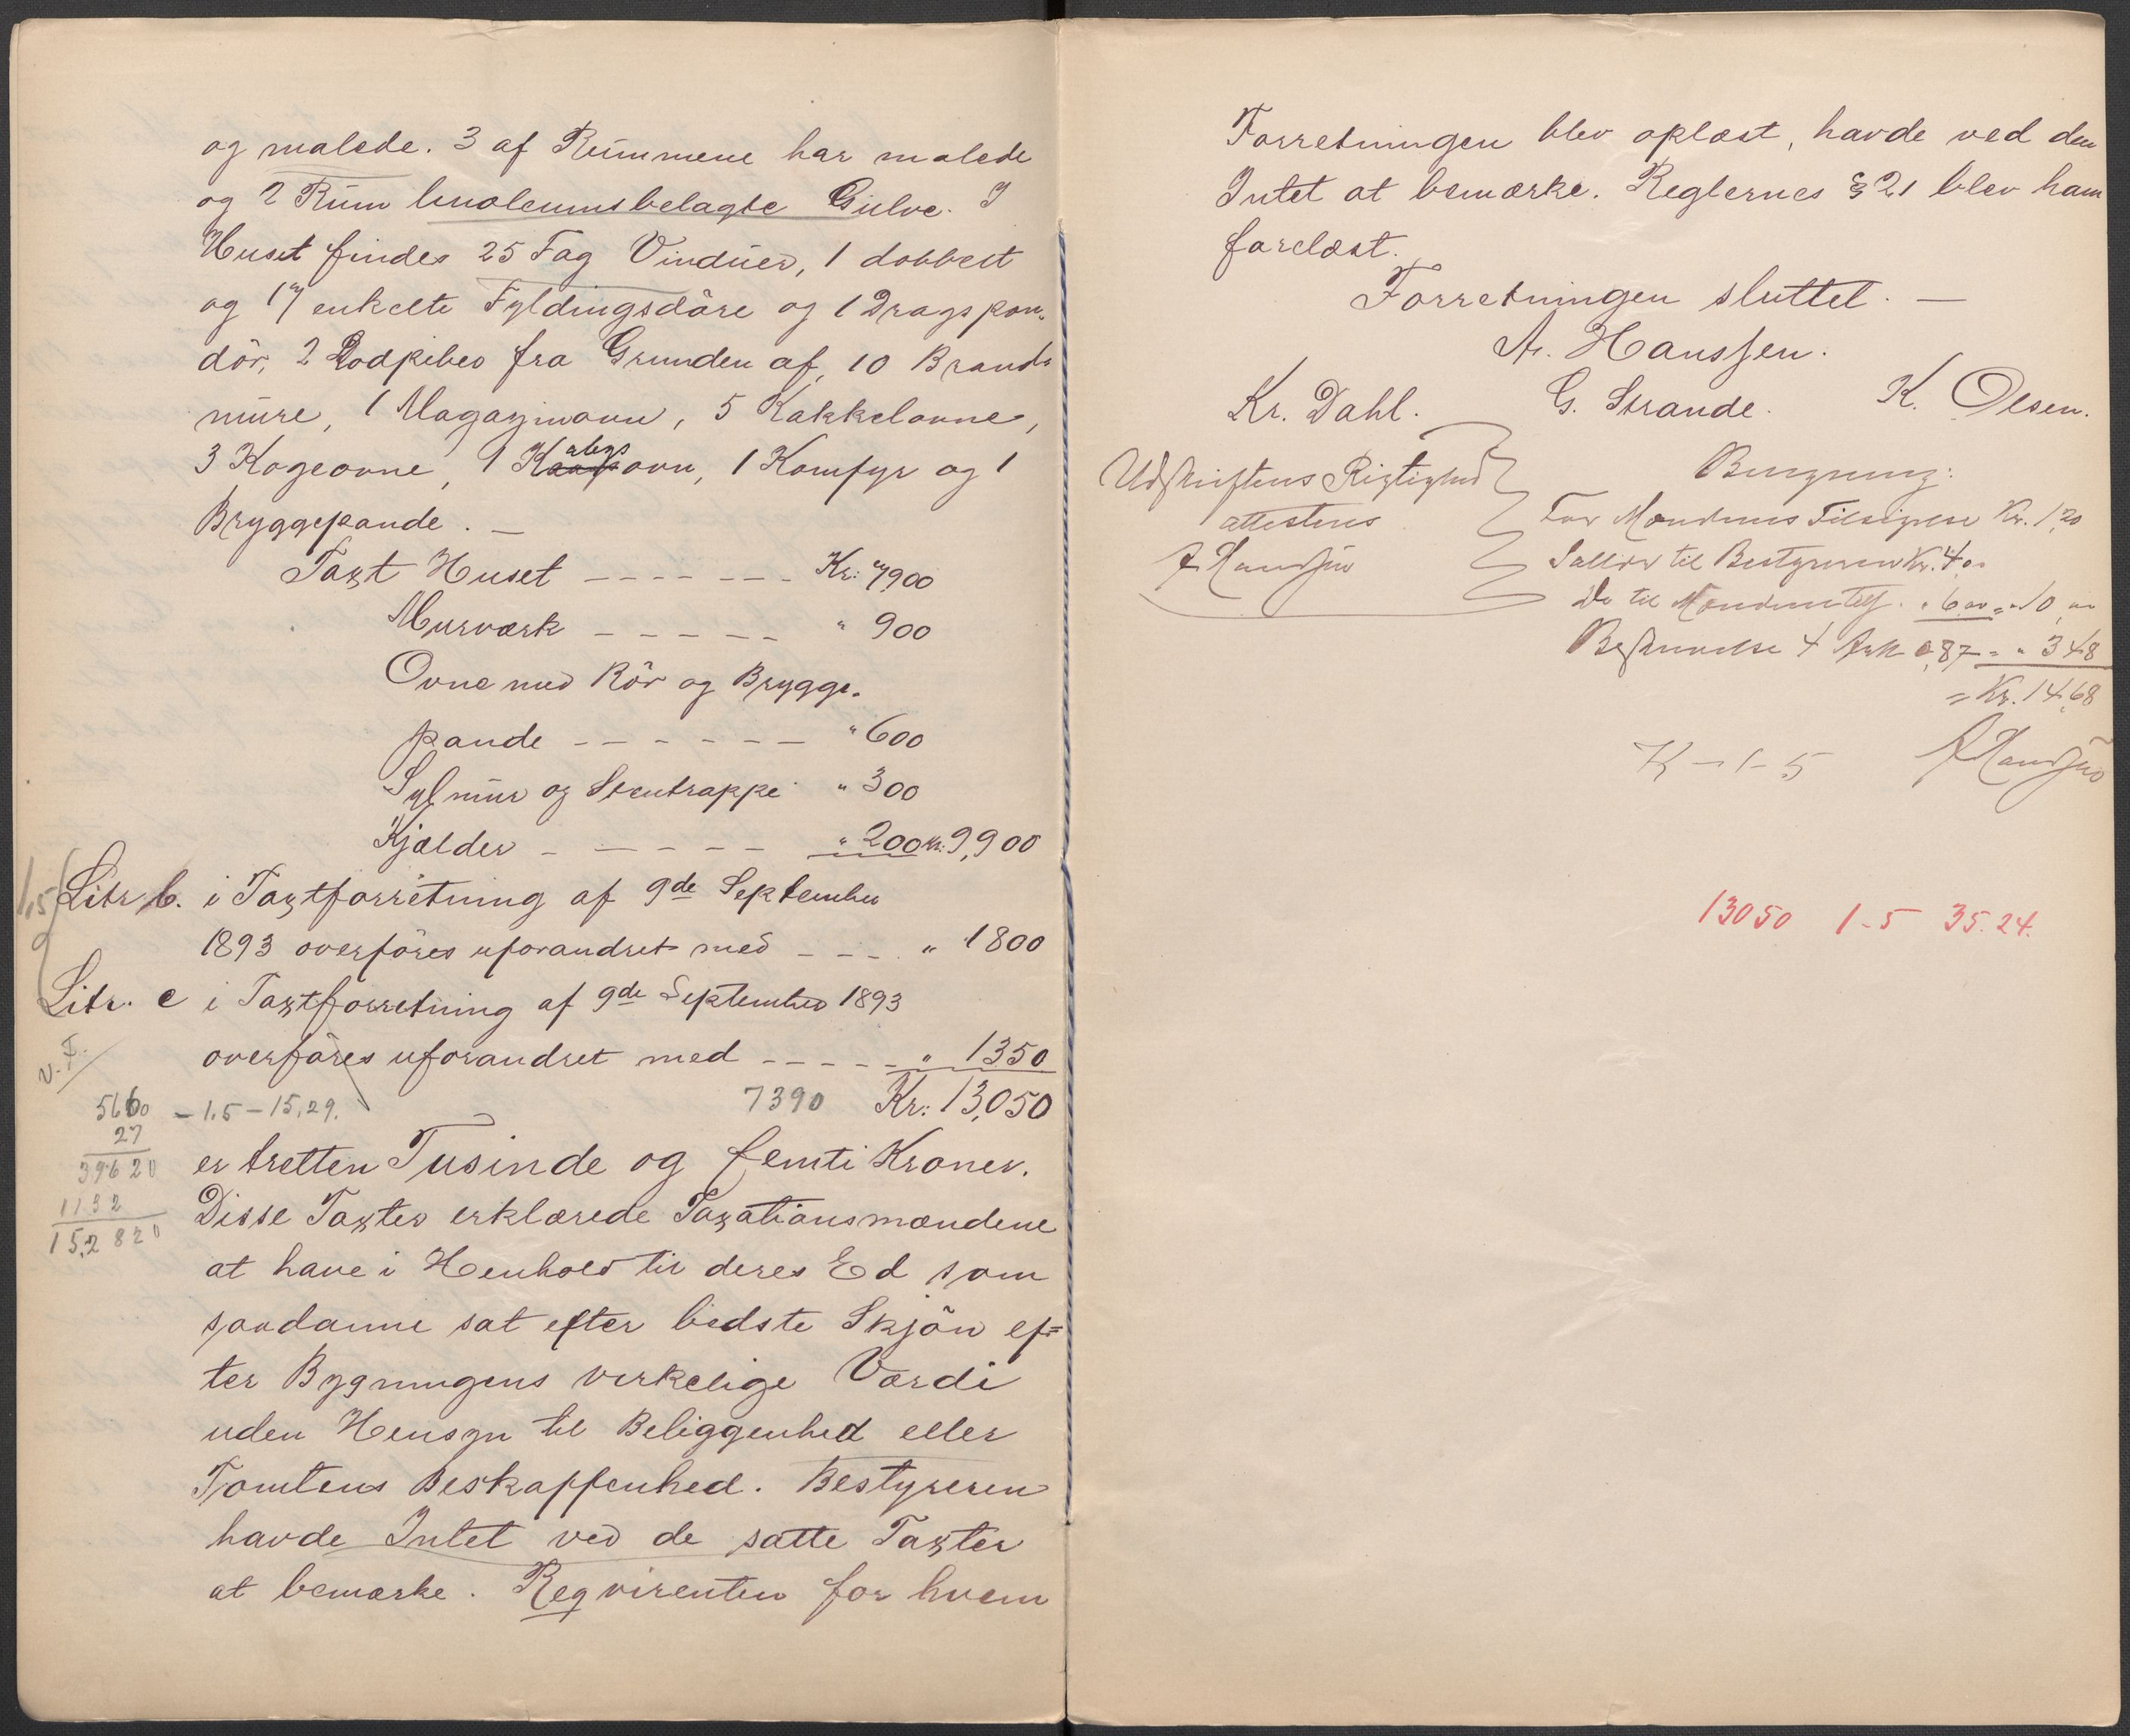 og malede. 3 af Rummene har malede
og 2 Rum linoleumsbelagte Gulve. I
Huset findes 25 Fag Vinduer, 1 dobbelt
og 17 enkelte Fyldingsdöre og 1 Dragspon-
dör, 2 Rodpiber fra Grunden af, 10 Brand-
mure, 1 Magazinovn, 5 Kakkelovne,
3 Kogeovne, 1 Kabysovn, 1 Komfyr og 1
Bryggepande. —
Taxt Huset - - - - - - - Kr: 7,900
Murværk - - - - - " 900
Ovne med Rör og Brygge-
pande - - - - - - " 600
Sylmur og Stentrappe " 300
Kjælder - - - - - " 200 Kr: 9,900
Litr b. i Taxtforretning af 9de September
1893 overföres uforandret med - - - " 1800
Litr. c i Taxtforretning af 9de September 1893
overföres uforandret med - - - - - " 1350
7390 Kr: 13,050
1,5
9
v. F.
5660 - 1,5 - 15,29.
27
39620
1132
15,2820
er tretten Tusinde og femti Kroner.
Disse Taxter erklærede Taxationsmændene
at have i Henhold til deres Ed som
saadanne sat efter bedste Skjön ef=
ter Bygningens virkelige Værdi
uden Hensyn til Beliggenhed eller
Tomtens Beskaffenhed. Bestyreren
havde Intet ved de satte Taxter
at bemærke. Reqvirenten for hvem
Forretningen blev oplæst, havde ved den
Intet at bemærke. Reglernes § 21 blev ham
forelæst.
Forretningen sluttet. —
A. Hanssen.
Kr. Dahl. G. Strande. K. Olsen.
Udskriftens Rigtighed
attesteres
A Hanssen
Beregning:
For Mændenes Tilsigelse Kr. 1,20
Sallær til Bestyreren Kr. 4,00
Do til Mændene " 6,00 = " 10,00
Beskrivelse 4 Ark 0,87 = " 3,48
= Kr. 14,68
K - 1 - 5 A Hanssen
13050 1-5 35.24.